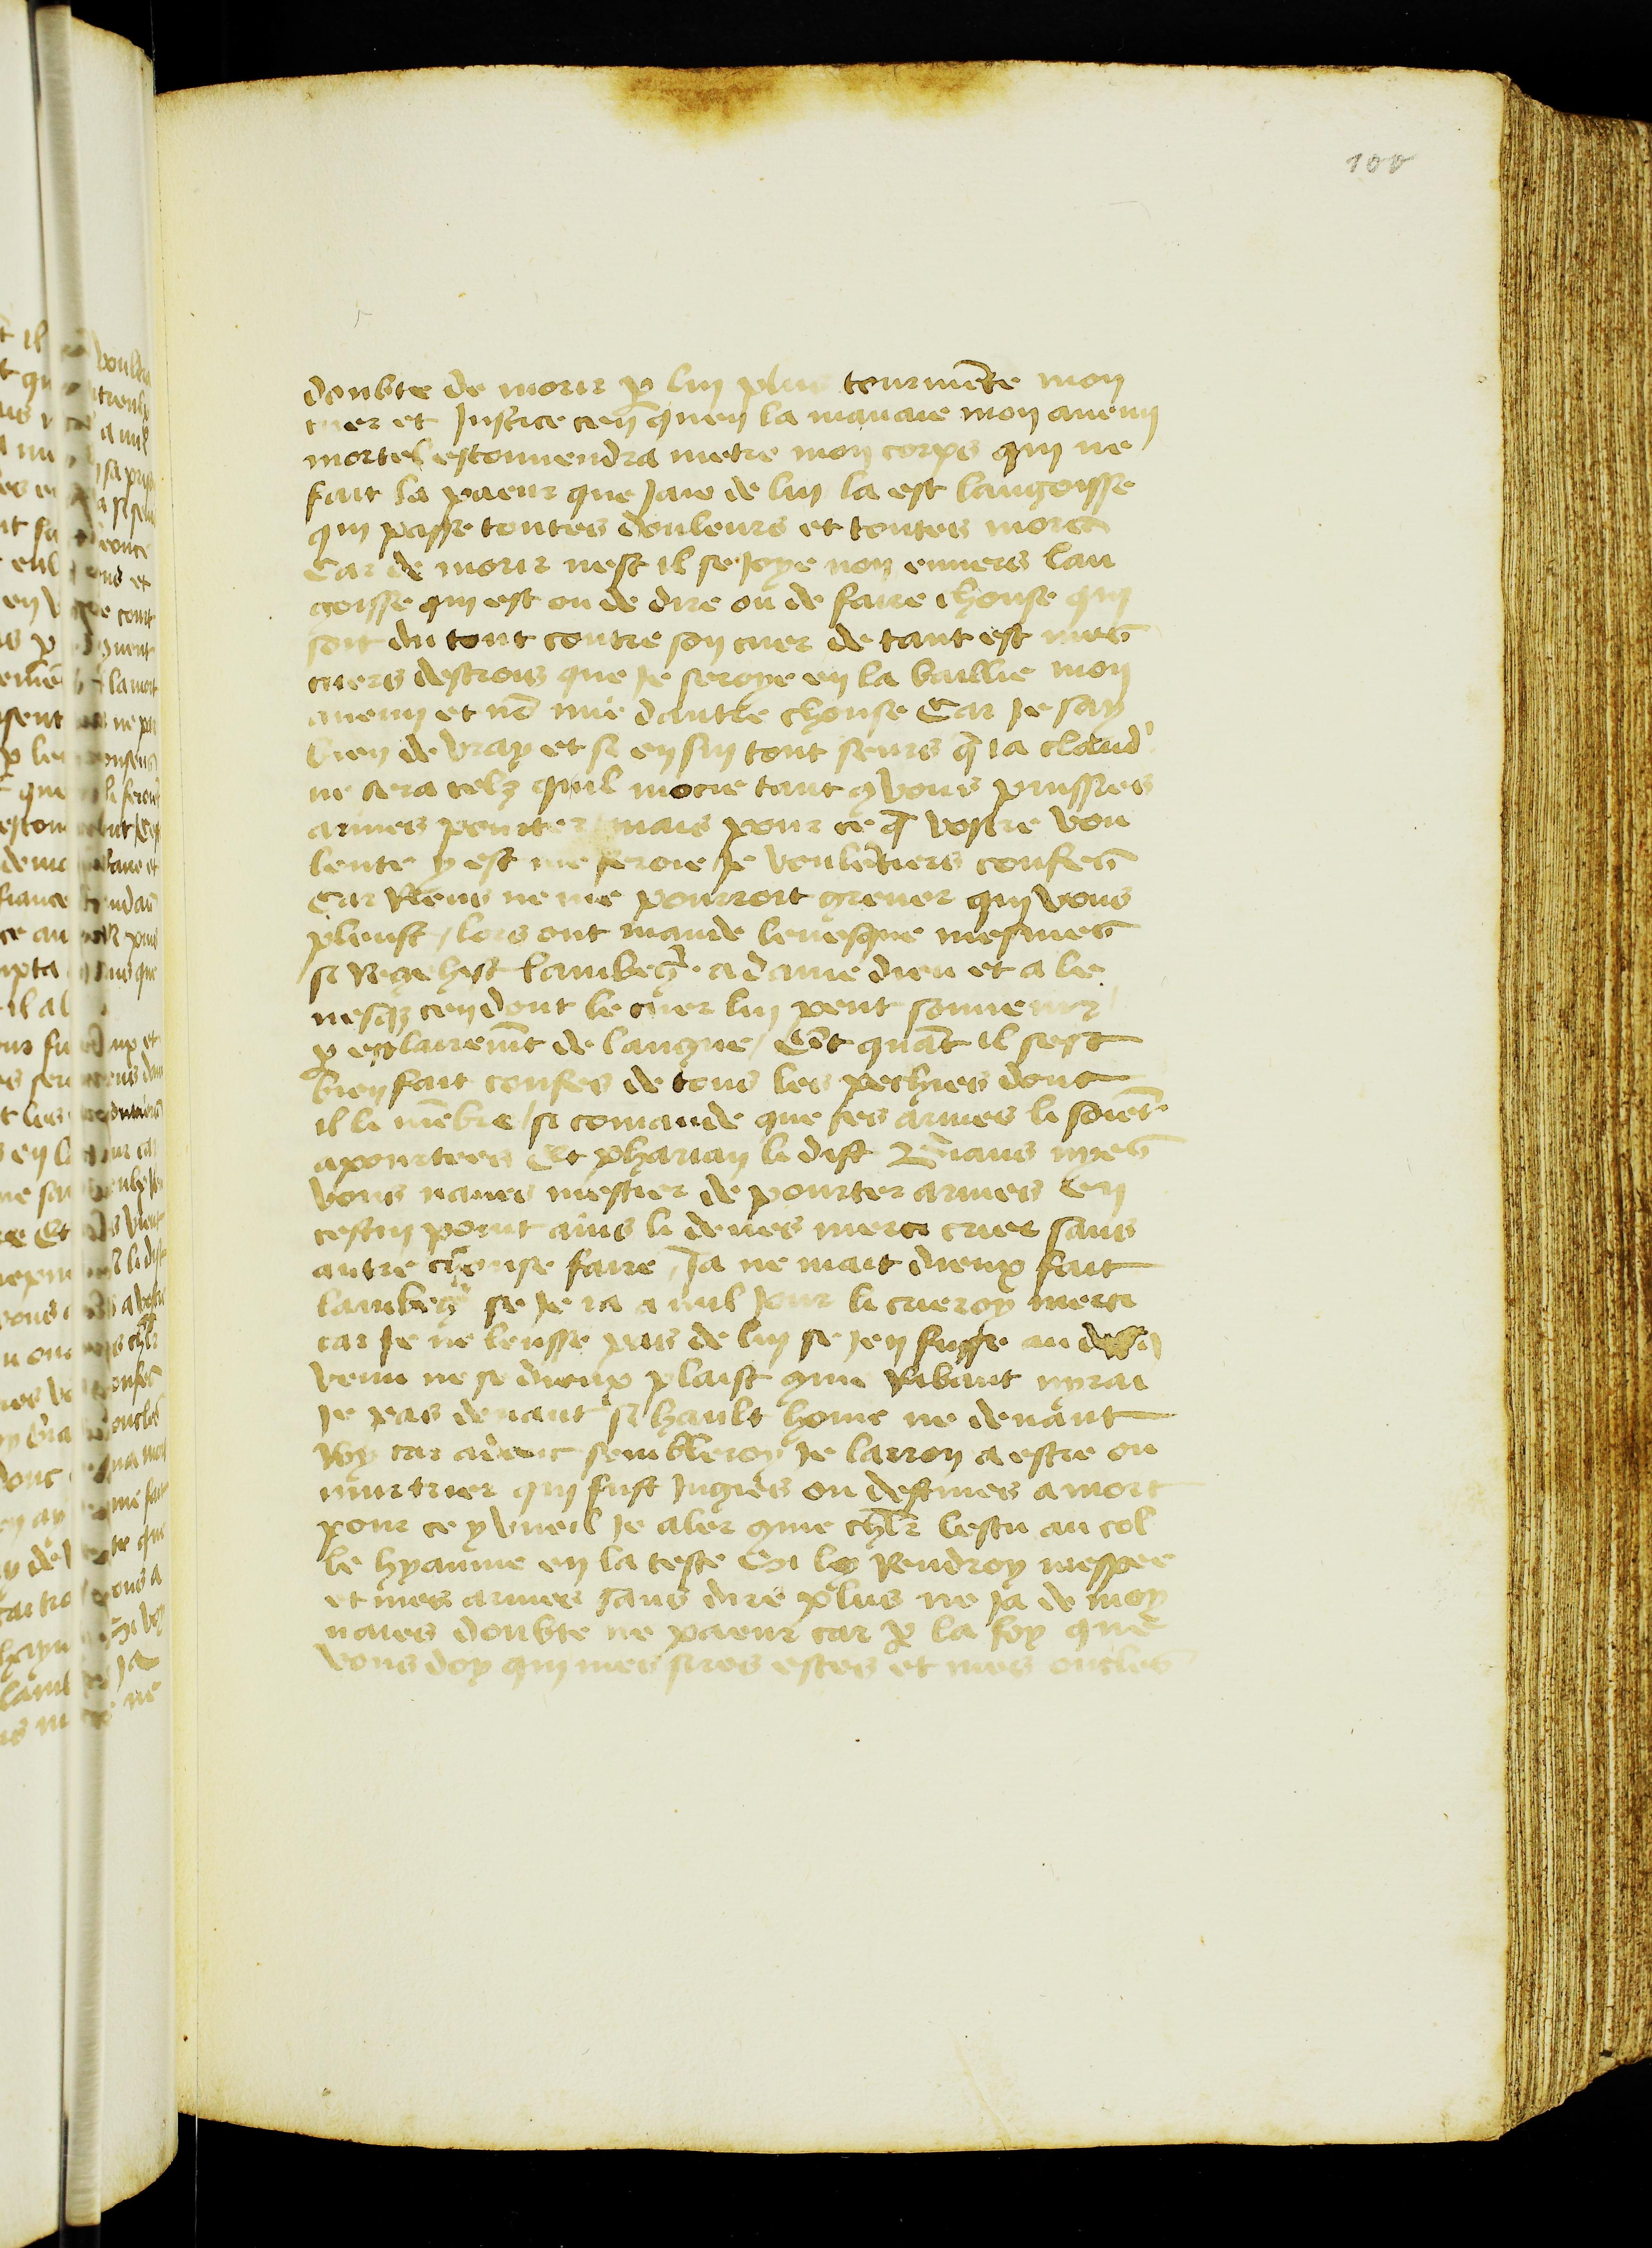 100
doubte de morir p̱ luy plus tourmẽte mon
cuer et Justice ceñ quen la manaie mon anemy
mortel estouuendra metre mon corps qui ne
fait la paeur que Jaie de luy la est langoisse
qui passe toutes douleurs et toutes mors
Car de morir nest il se Joye non enuers lan
goisse qui est ou de dire ou de faire chouse qui
soit du tout contre son cuer de tant est mes
cuers destrois que Je seroye en la baillie mon
anemy et nõ mie dautre chouse Car Je say
bien de vray et si en suy tout seurs q̃ ia claud'
ne sera telz quil mocie tant 9 vous puissies
armes pourter mais pour ce q̃ vostre vou
lente y est me feroie Je voulẽtiers confes
Car Riens ne me pourroit greuer qui vous
pleust / lors ont mande leuesque mesmes
si Regehist lambeg̃. a dame dieu et a le
uesq̃ ceu dont le cuer luy peut souuenir
p̱ esclairemẽt de langue / Et quãt il sest
bien fait confes de tous les pechies dont
il li mẽbre / si comande que ses armes li soiẽt
apourtees Et pharian li dist Biaus nyes
vous naues mestier de pourter armes En
cestuy point ains li deues merci crier sans
autre chouse faire / Ja ne mait dieux fait
lambeg̃ se Je ia a nul Jour li crieroy merci
car Je ne leusse pas de luy se Jen fusse au
venu ne se dieux plaist 9me Ribaut nyrai
Je pas deuant si hault home ne deuant
Roy car adonc sembleroy Je larron a estre ou
murtrier qui fust Jugies ou destines a mort
pour ce y vueil Je aler 9me chl̃r lescu au col
le hyaume en la teste Si ly Rendroy mespee
et mes armes sans dire plus ne Ja de moy
naies doubte ne paeur car p̱ la foy que
vous doy qui mes sires estes et mes oncles